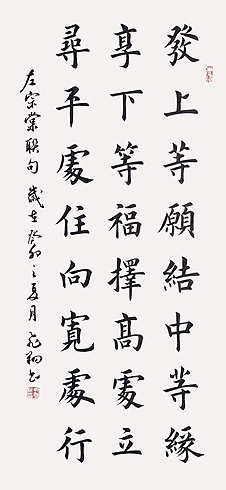 發上等願結中等緣
享下等福擇高處立
尋平處住向寬處行
左宗棠聯句 歲在癸卯之夏月